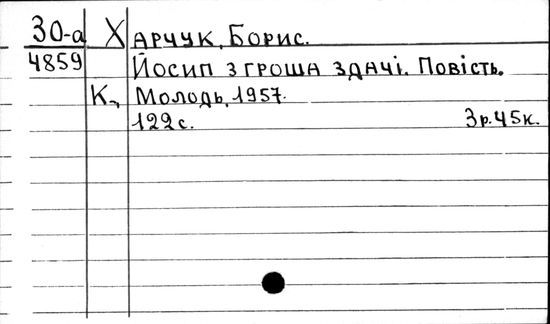 30-а Харчук, Борис.
4859 Йосип з гроша здачі. Повість.
К., Молодь, 1957.
122 с. 3р.45к.